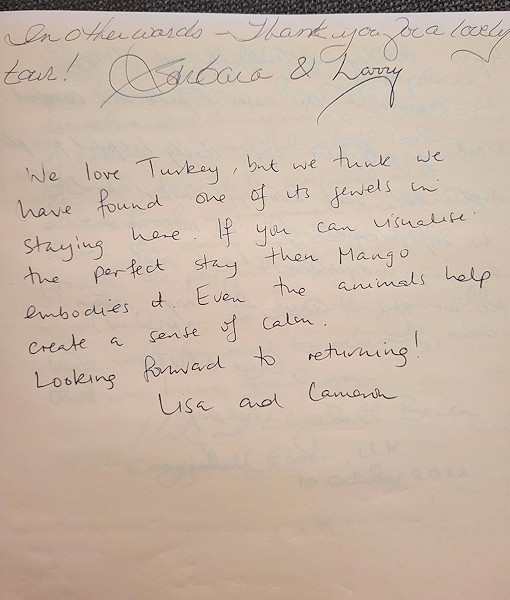 In other words - Thank you for a lovely
tour! Barbara & Larry
We love Turkey, but we think we
have found one of its jewels in
staying here. If you can visualise
the perfect stay then Mango
embodies it. Even the animals help
create a sense of calm.
Looking forward to returning!
Lisa and Cameron